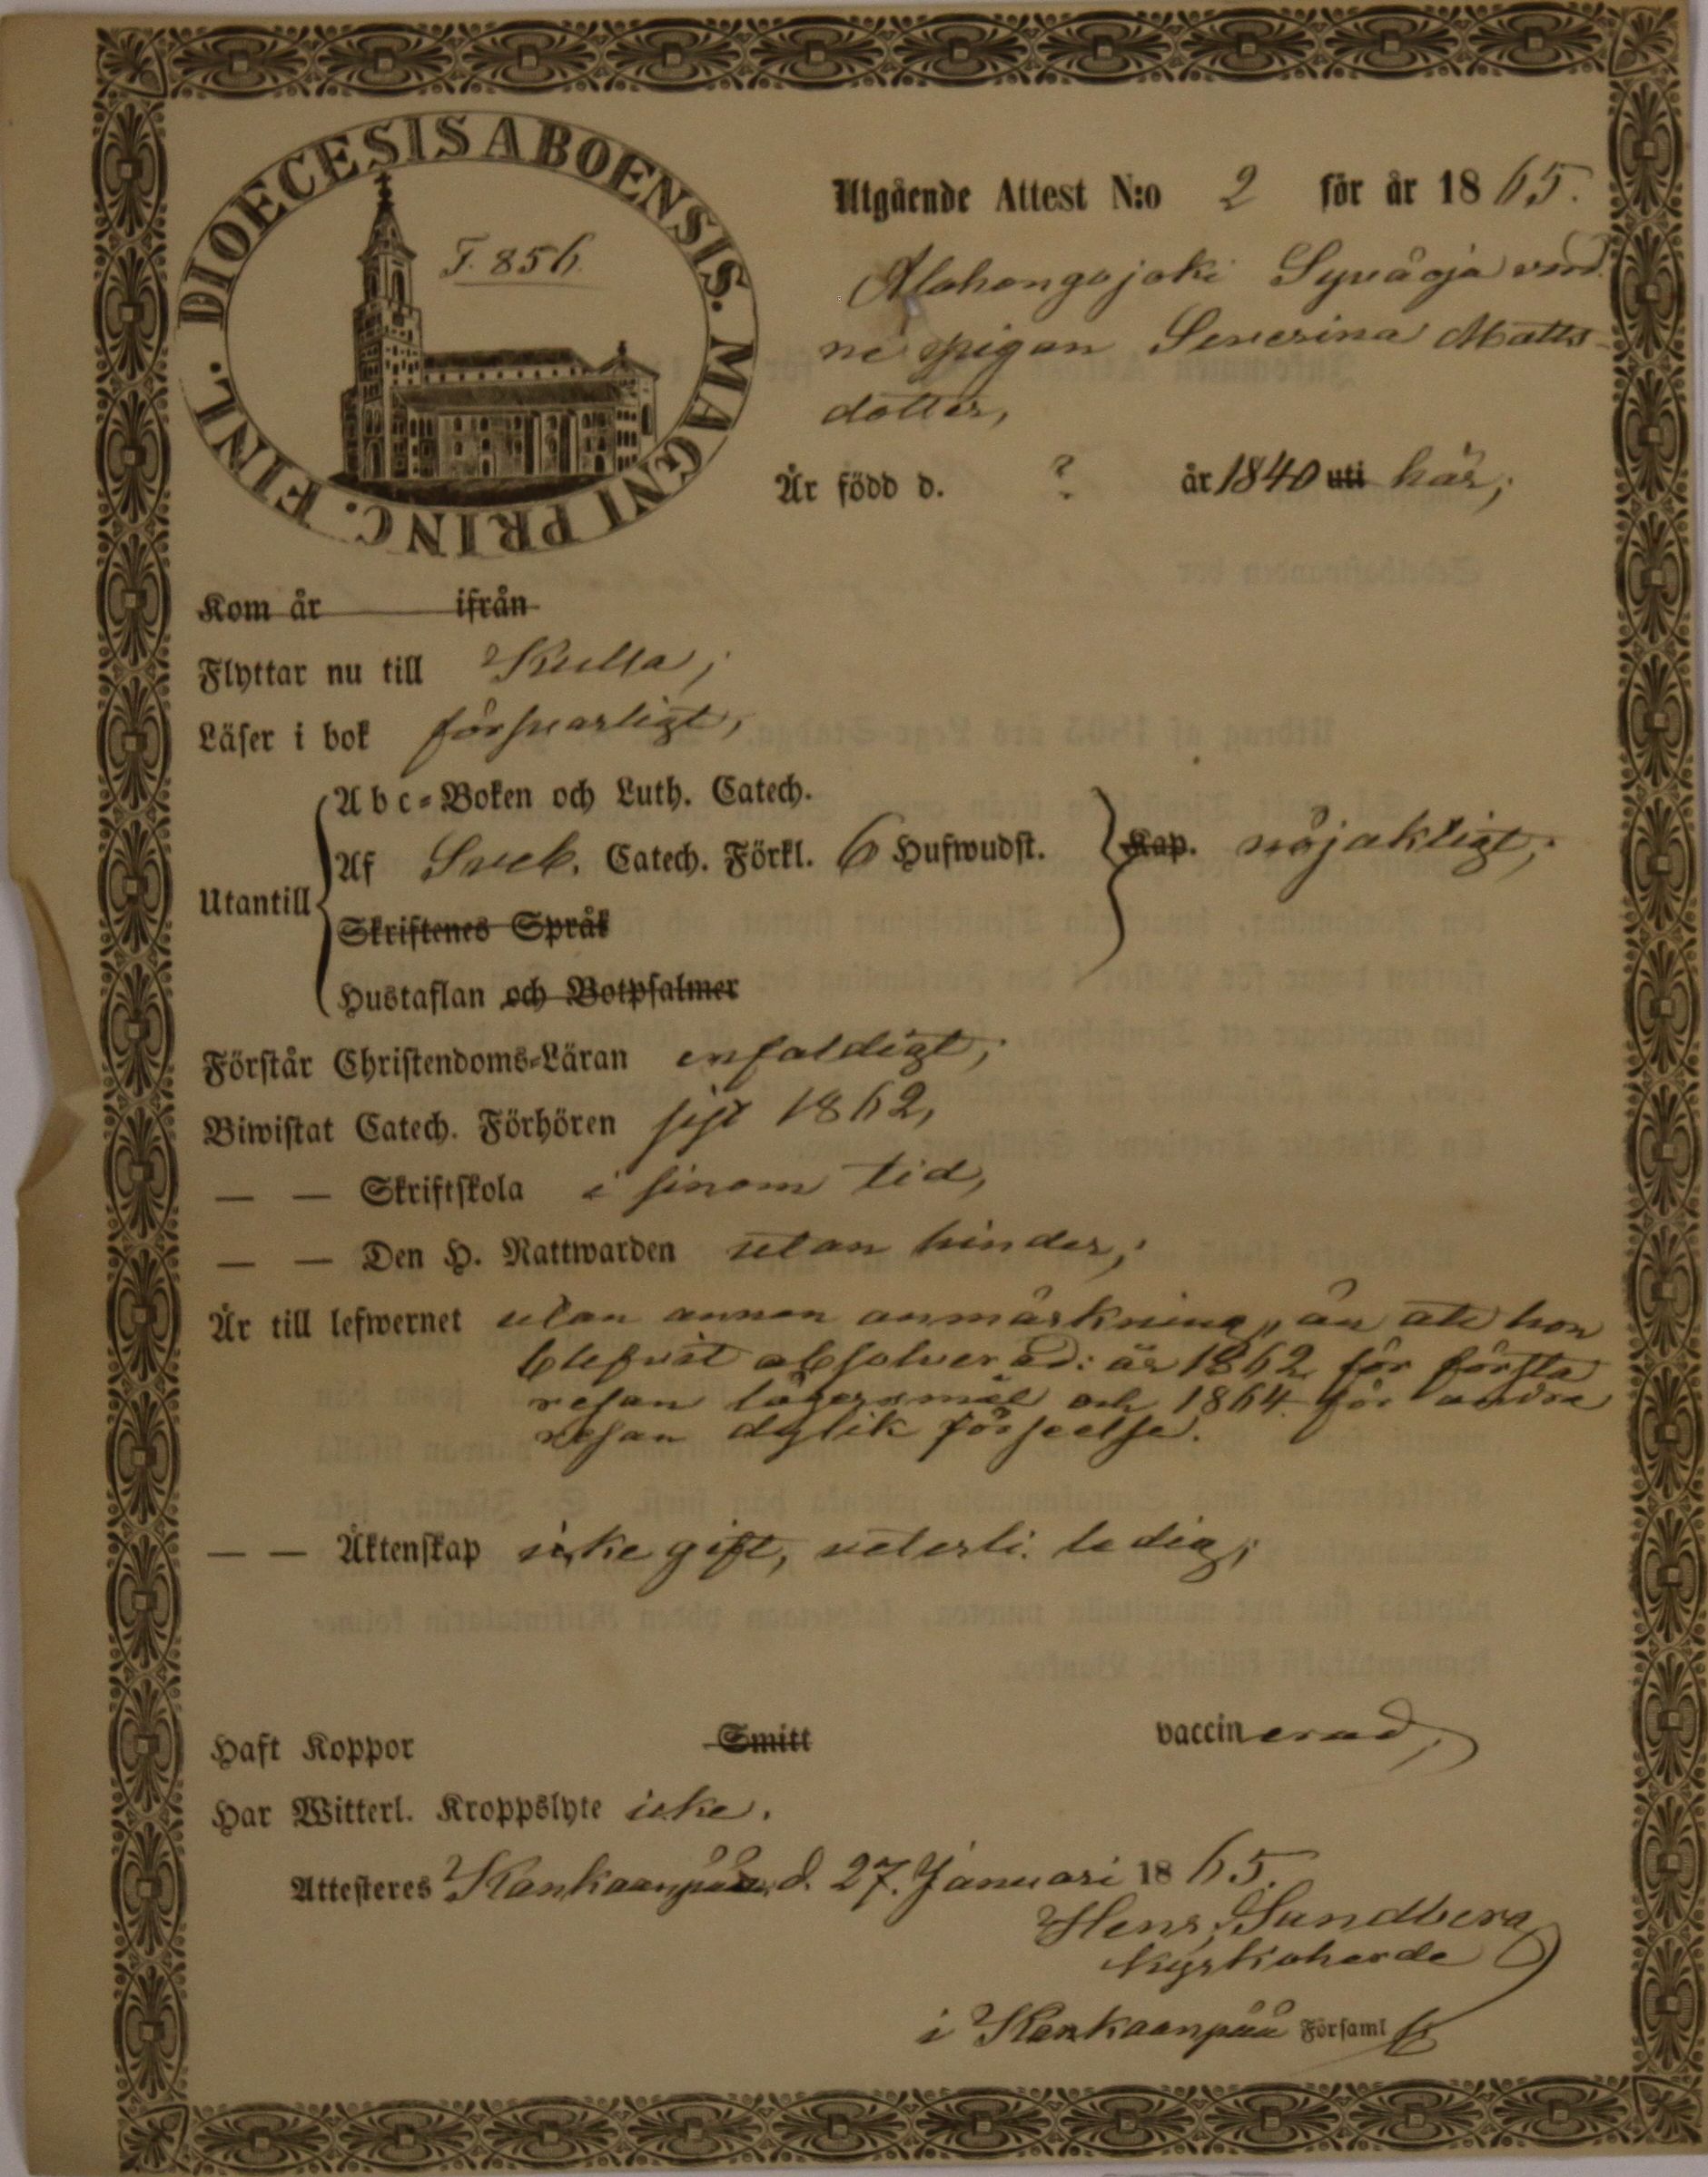 DIOECESIS ABOENSIS. MAGNI PRINC. FINL.
F. 856.
Utgående Attest N:o 2 för år 1865.
Alahongojoki Syväoja
pigan Severina Matts-
dotter,
Är född d. ? år 1840 uti här;
Kom år ifrån
Flyttar nu till Kulla;
Läser i bok försvarligt,
Utantill
A b c-Boken och Luth. Catech.
Af Sveb. Catech. Förkl. 6 Hufwudst. Kap. nöjaktligt;
Skriftenes Språk
Hustaflan och Botpsalmer
Förstår Christendoms-Läran enfaldigt;
Biwistat Catech. Förhören sist 1862,
— — Skriftskola i sinom tid,
— — Den H. Nattwarden utan hinder;
Är till lefwernet utan annan anmärkning, än att hon
blefvit absolverad: år 1862 för första
resan lägersmål och 1864 för andra
resan dylik förseelse.
— — Äktenskap icke gift, veterl. ledig;
Haft Koppor Smitt vaccinerad;
Har Witterl. Kroppslyte icke.
Attesteres Kankaanpää d. 27. Januari 1865.
Henr. Sandberg
kyrkoherde
i Kankaanpää Församl